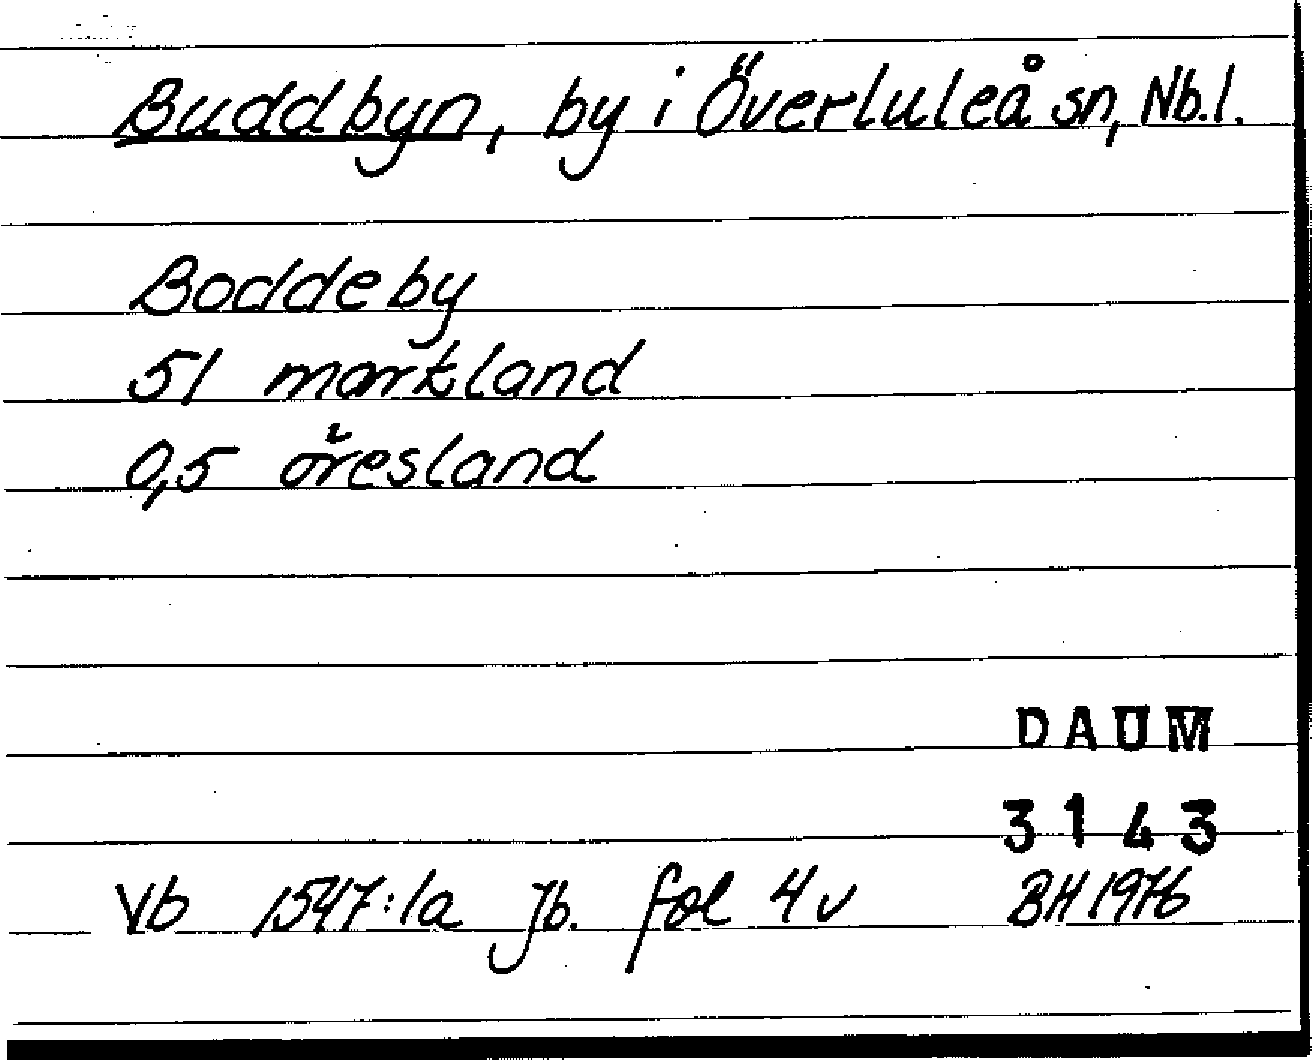 Buddbyn, by i Överluleå sn, Nb.l.
Boddeby
51 markland
0,5 öresland
DAUM
3143
Vb 1547:1a Jb. fol 4v BH 1976